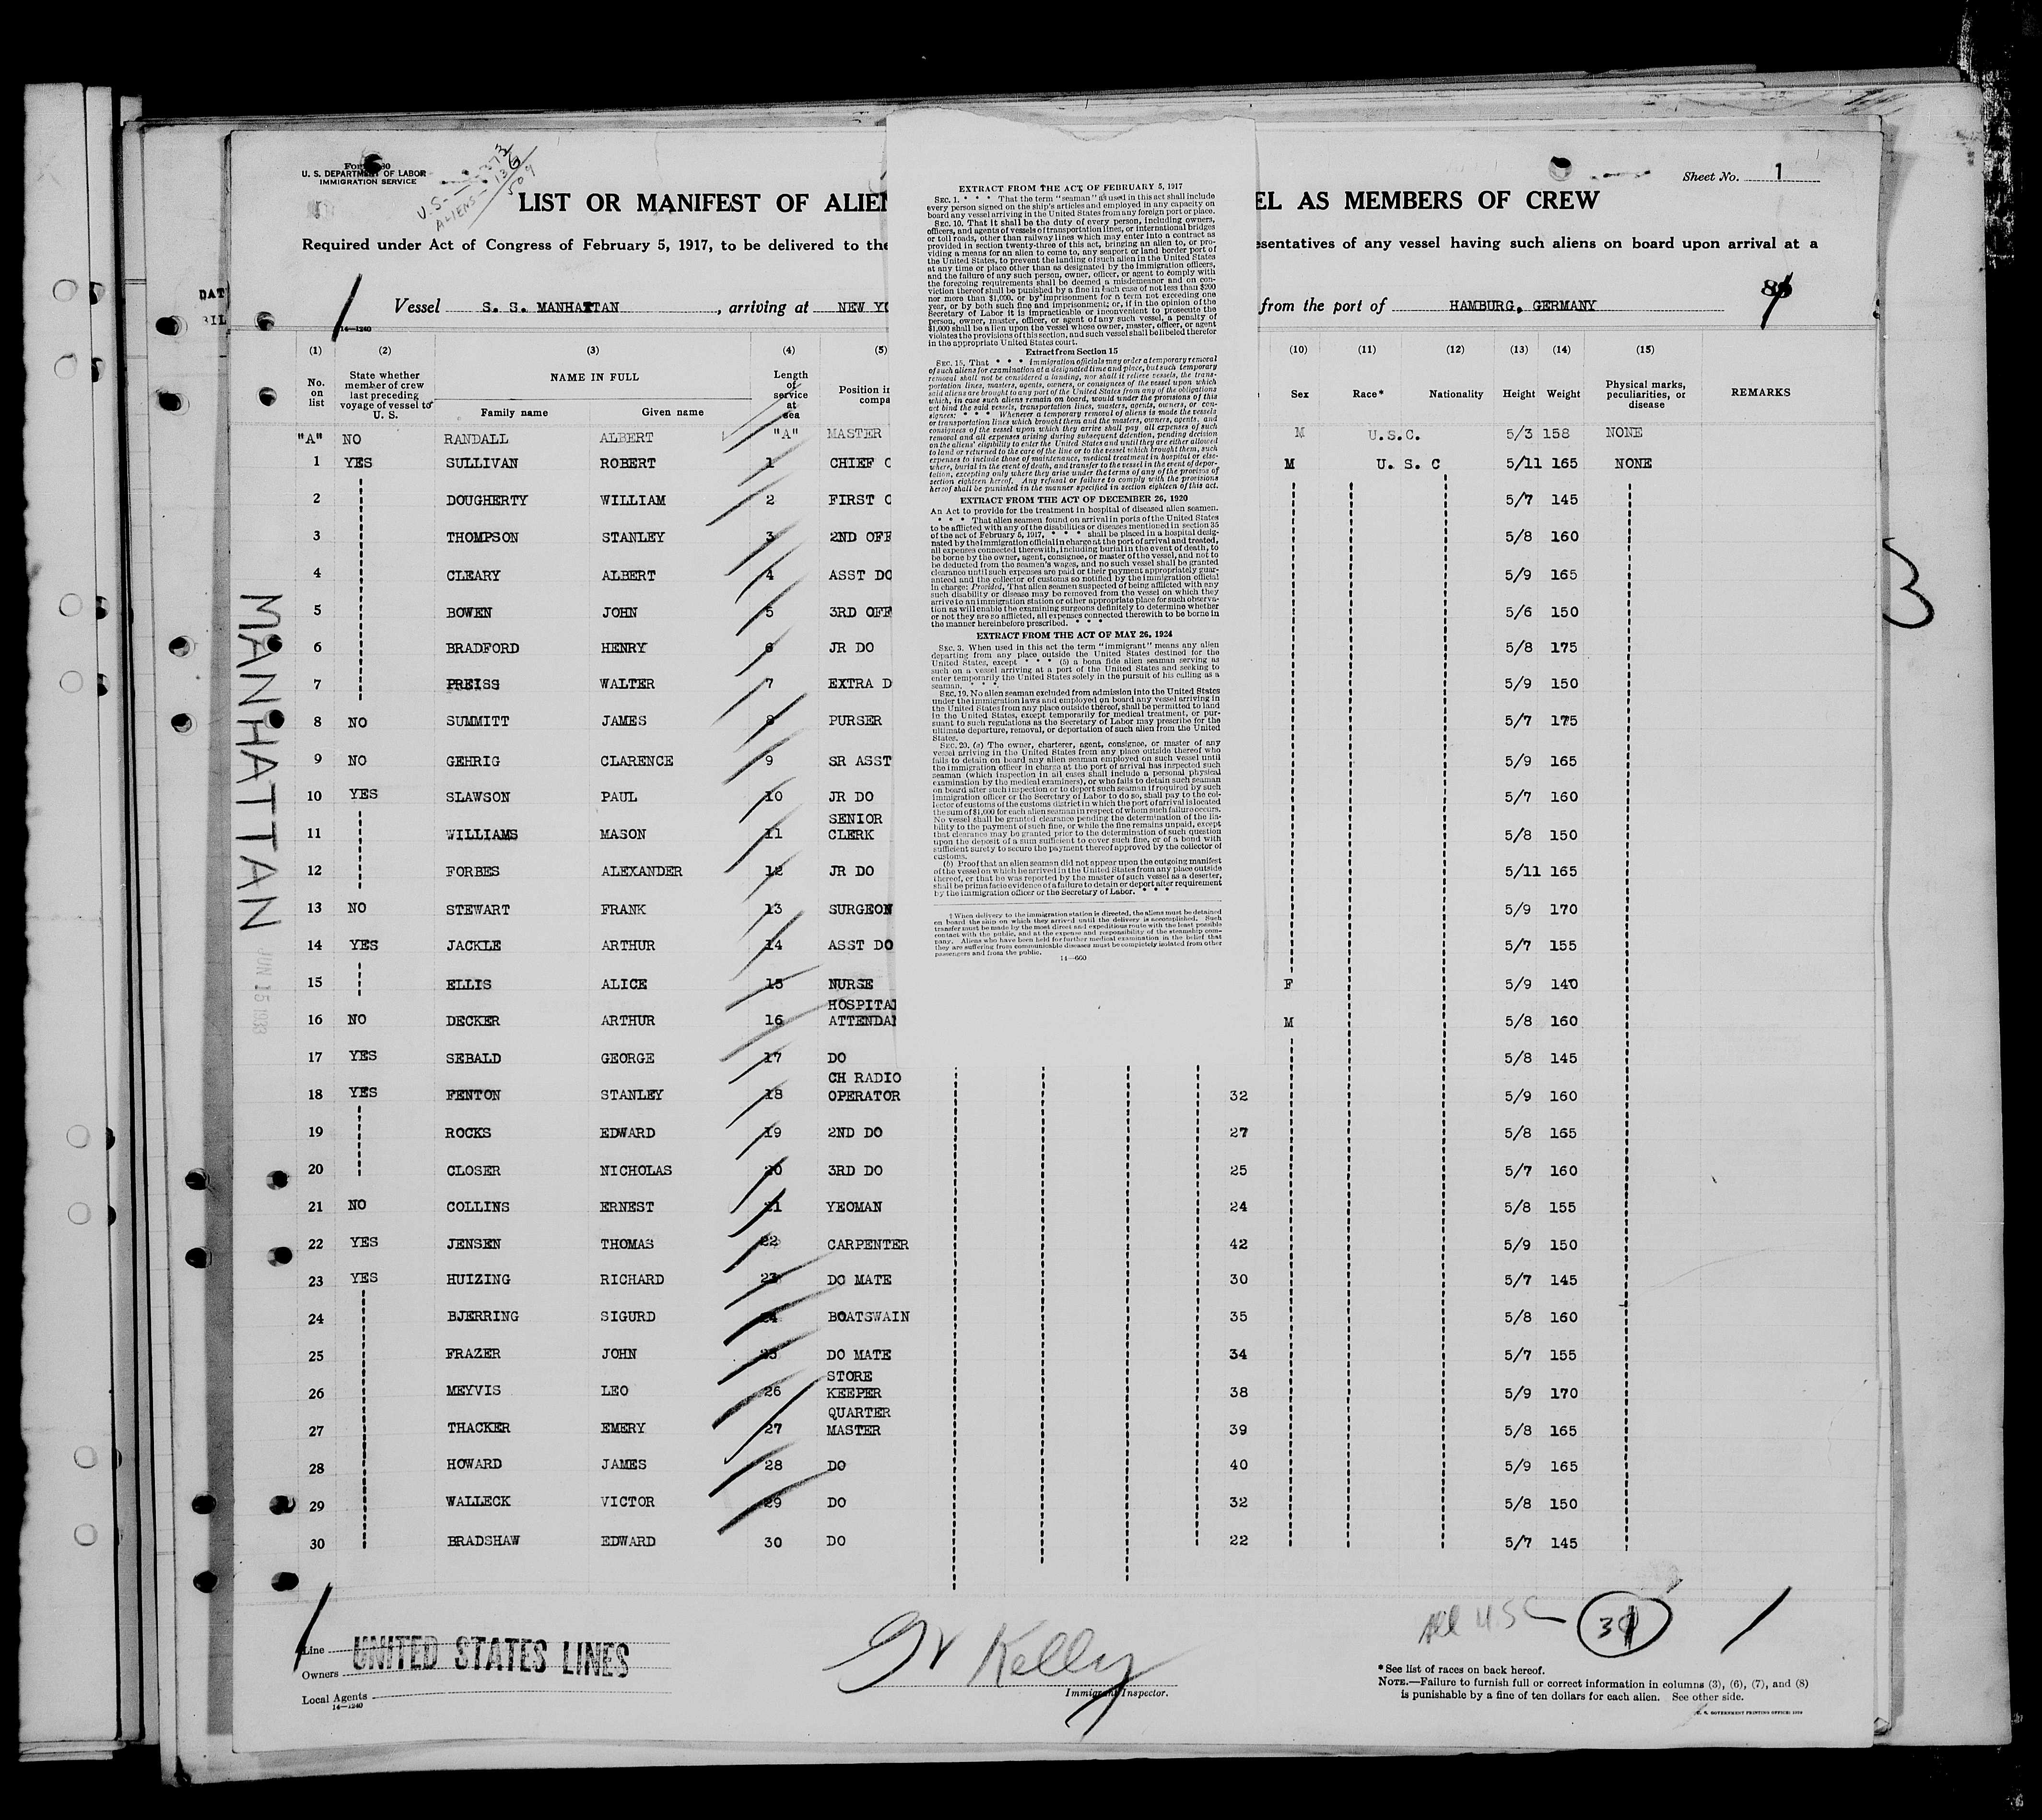 Form 680
U. S. DEPARTMENT OF LABOR
IMMIGRATION SERVICE
U.S. - 373
ALIENS - 136
509
Sheet No. 1
LIST OR MANIFEST OF ALIEN
EL AS MEMBERS OF CREW
Required under Act of Congress of February 5, 1917, to be delivered to the
esentatives of any vessel having such aliens on board upon arrival at a
Vessel S. S. MANHATTAN, arriving at NEW YO
from the port of HAMBURG, GERMANY
14—1240
(1) (2) (3) (4) (5) (10) (11) (12) (13) (14) (15)
No. on list
State whether member of crew last preceding voyage of vessel to U. S.
NAME IN FULL
Family name Given name
Length of service at sea
Position in
compa
Sex Race* Nationality Height Weight
Physical marks, peculiarities, or disease
REMARKS
"A" NO RANDALL ALBERT "A" MASTER M U.S.C. 5/3 158 NONE
1 YES SULLIVAN ROBERT 1 CHIEF O M U. S. C 5/11 165 NONE
2 DOUGHERTY WILLIAM 2 FIRST O 5/7 145
3 THOMPSON STANLEY 3 2ND OFF 5/8 160
4 CLEARY ALBERT 4 ASST DO 5/9 165
5 BOWEN JOHN 5 3RD OFF 5/6 150
6 BRADFORD HENRY 6 JR DO 5/8 175
7 PREISS WALTER 7 EXTRA D 5/9 150
8 NO SUMMITT JAMES 8 PURSER 5/7 175
9 NO GEHRIG CLARENCE 9 SR ASST 5/9 165
10 YES SLAWSON PAUL 10 JR DO 5/7 160
SENIOR
11 WILLIAMS MASON 11 CLERK 5/8 150
12 FORBES ALEXANDER 12 JR DO 5/11 165
13 NO STEWART FRANK 13 SURGEON 5/9 170
14 YES JACKLE ARTHUR 14 ASST DO 5/7 155
15 ELLIS ALICE 15 NURSE F 5/9 140
HOSPITAL
16 NO DECKER ARTHUR 16 ATTENDAN M 5/8 160
17 YES SEBALD GEORGE 17 DO 5/8 145
CH RADIO
18 YES FENTON STANLEY 18 OPERATOR 32 5/9 160
19 ROCKS EDWARD 19 2ND DO 27 5/8 165
20 CLOSER NICHOLAS 20 3RD DO 25 5/7 160
21 NO COLLINS ERNEST 21 YEOMAN 24 5/8 155
22 YES JENSEN THOMAS 22 CARPENTER 42 5/9 150
23 YES HUIZING RICHARD 23 DO MATE 30 5/7 145
24 BJERRING SIGURD 24 BOATSWAIN 35 5/8 160
25 FRAZER JOHN 25 DO MATE 34 5/7 155
STORE
26 MEYVIS LEO 26 KEEPER 38 5/9 170
QUARTER
27 THACKER EMERY 27 MASTER 39 5/8 165
28 HOWARD JAMES 28 DO 40 5/9 165
29 WALLECK VICTOR 29 DO 32 5/8 150
30 BRADSHAW EDWARD 30 DO 22 5/7 145
EXTRACT FROM THE ACT OF FEBRUARY 5, 1917
SEC. 1. * * * That the term "seaman" as used in this act shall include
every person signed on the ship's articles and employed in any capacity on
board any vessel arriving in the United States from any foreign port or place.
SEC. 10. That it shall be the duty of every person, including owners,
officers, and agents of vessels of transportation lines, or international bridges
or toll roads, other than railway lines which may enter into a contract as
provided in section twenty-three of this act, bringing an alien to, or pro-
viding a means for an alien to come to, any seaport or land border port of
the United States, to prevent the landing of such alien in the United States
at any time or place other than as designated by the immigration officers,
and the failure of any such person, owner, officer, or agent to comply with
the foregoing requirements shall be deemed a misdemeanor and on con-
viction thereof shall be punished by a fine in each case of not less than $200
nor more than $1,000, or by imprisonment for a term not exceeding one
year, or by both such fine and imprisonment; or, if in the opinion of the
Secretary of Labor it is impracticable or inconvenient to prosecute the
person, owner, master, officer, or agent of any such vessel, a penalty of
$1,000 shall be a lien upon the vessel whose owner, master, officer, or agent
violates the provisions of this section, and such vessel shall be libeled therefor
in the appropriate United States court.
Extract from Section 15
SEC. 15. That * * * immigration officials may order a temporary removal
of such aliens for examination at a designated time and place, but such temporary
removal shall not be considered a landing, nor shall it relieve vessels, the trans-
portation lines, masters, agents, owners, or consignees of the vessel upon which
said aliens are brought to any port of the United States from any of the obligations
which, in case such aliens remain on board, would under the provisions of this
act bind the said vessels, transportation lines, masters, agents, owners, or con-
signees: * * * Whenever a temporary removal of aliens is made the vessels
or transportation lines which brought them and the masters, owners, agents, and
consignees of the vessel upon which they arrive shall pay all expenses of such
removal and all expenses arising during subsequent detention, pending decision
on the aliens' eligibility to enter the United States and until they are either allowed
to land or returned to the care of the line or to the vessel which brought them, such
expenses to include those of maintenance, medical treatment in hospital or else-
where, burial in the event of death, and transfer to the vessel in the event of depor-
tation, excepting only where they arise under the terms of any of the provisos of
section eighteen hereof. Any refusal or failure to comply with the provisions
hereof shall be punished in the manner specified in section eighteen of this act.
EXTRACT FROM THE ACT OF DECEMBER 26, 1920
An Act to provide for the treatment in hospital of diseased alien seamen.
* * * That alien seamen found on arrival in ports of the United States
to be afflicted with any of the disabilities or diseases mentioned in section 35
of the act of February 5, 1917, * * * shall be placed in a hospital desig-
nated by the immigration official in charge at the port of arrival and treated,
all expenses connected therewith, including burial in the event of death, to
be borne by the owner, agent, consignee, or master of the vessel, and not to
be deducted from the seamen's wages, and no such vessel shall be granted
clearance until such expenses are paid or their payment appropriately guar-
anteed and the collector of customs so notified by the immigration official
in charge: Provided, That alien seamen suspected of being afflicted with any
such disability or disease may be removed from the vessel on which they
arrive to an immigration station or other appropriate place for such observa-
tion as will enable the examining surgeons definitely to determine whether
or not they are so afflicted, all expenses connected therewith to be borne in
the manner hereinbefore prescribed. * * *
EXTRACT FROM THE ACT OF MAY 26, 1924
SEC. 3. When used in this act the term "immigrant" means any alien
departing from any place outside the United States destined for the
United States, except * * * (5) a bona fide alien seaman serving as
such on a vessel arriving at a port of the United States and seeking to
enter temporarily the United States solely in the pursuit of his calling as a
seaman. * * *
SEC. 19. No alien seaman excluded from admission into the United States
under the immigration laws and employed on board any vessel arriving in
the United States from any place outside thereof, shall be permitted to land
in the United States, except temporarily for medical treatment, or pur-
suant to such regulations as the Secretary of Labor may prescribe for the
ultimate departure, removal, or deportation of such alien from the United
States.
SEC. 20. (a) The owner, charterer, agent, consignee, or master of any
vessel arriving in the United States from any place outside thereof who
fails to detain on board any alien seaman employed on such vessel until
the immigration officer in charge at the port of arrival has inspected such
seaman (which inspection in all cases shall include a personal physical
examination by the medical examiners), or who fails to detain such seaman
on board after such inspection or to deport such seaman if required by such
immigration officer or the Secretary of Labor to do so, shall pay to the col-
lector of customs of the customs district in which the port of arrival is located
the sum of $1,000 for each alien seaman in respect of whom such failure occurs.
No vessel shall be granted clearance pending the determination of the lia-
bility to the payment of such fine, or while the fine remains unpaid, except
that clearance may be granted prior to the determination of such question
upon the deposit of a sum sufficient to cover such fine, or of a bond with
sufficient surety to secure the payment thereof approved by the collector of
customs.
(b) Proof that an alien seaman did not appear upon the outgoing manifest
of the vessel on which he arrived in the United States from any place outside
thereof, or that he was reported by the master of such vessel as a deserter,
shall be prima facie evidence of a failure to detain or deport after requirement
by the immigration officer or the Secretary of Labor. * * *
¶ When delivery to the immigration station is directed, the aliens must be detained
on board the ship on which they arrived until the delivery is accomplished. Such
transfer must be made by the most direct and expeditious route with the least possible
contact with the public, and at the expense and responsibility of the steamship com-
pany. Aliens who have been held for further medical examination in the belief that
they are suffering from communicable diseases must be completely isolated from other
passengers and from the public.
14—660
MANHATTAN
JUN 15 1933
DAT
3
All U.S.C.
Line
Owners UNITED STATES LINES
Local Agents
14—1240
Kelly
Immigrant Inspector.
*See list of races on back hereof.
NOTE.—Failure to furnish full or correct information in columns (3), (6), (7), and (8)
is punishable by a fine of ten dollars for each alien. See other side.
U. S. GOVERNMENT PRINTING OFFICE: